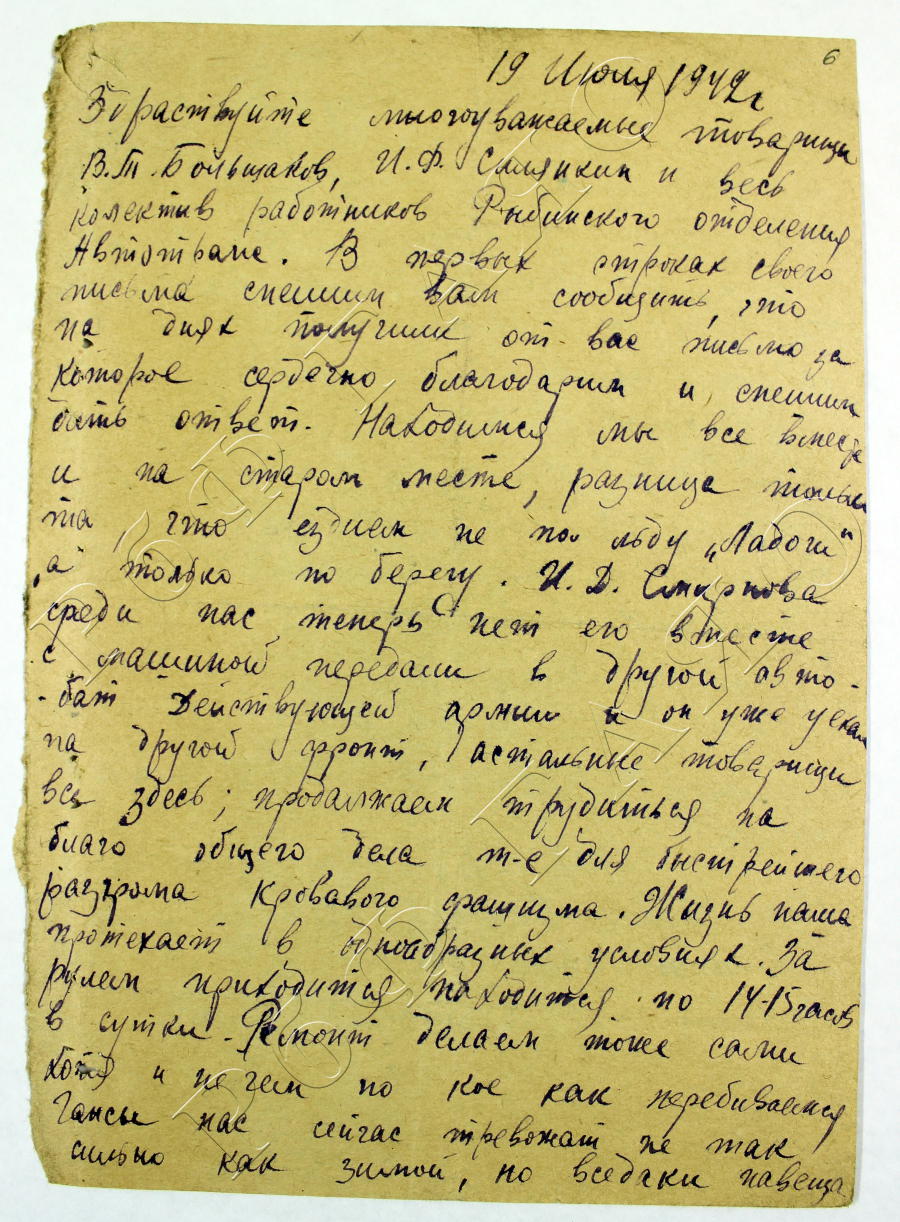 6
19 Июля 1942 г
Здраствуйте многоуважаемые товарищи
В.Т. Большаков, И.Ф. Смянкин и весь
колектив работников Рыбинского отделения
Автотранс. В первых строках своего
письма спешим вам сообщить, что
на днях получили от вас письмо за
которое сердечно благодарим и спешим
дать ответ. Находимся мы все вместе
и на старом месте, разница только
та, что ездием не по льду „Ладоги"
а только по берегу. И.Д. Смирнова
среди нас теперь нет его вместе
с машиной передали в другой авто-
-бат Действующей армии и он уже уехал
на другой фронт, астальные товарищи
все здесь; продалжаем трудиться на
благо общего дела т-е для быстрейшего
разгрома кровавого фашизма. Жизнь наша
протекает в однообразных условиях. За
рулем приходится находится по 14-15 часов
в сутки. Ремонт делаем тоже сами
хотя и нечем но кое как перебиваемся
Гансы нас сейчас тревожат не так
сильно как зимой, но вседаки навеща